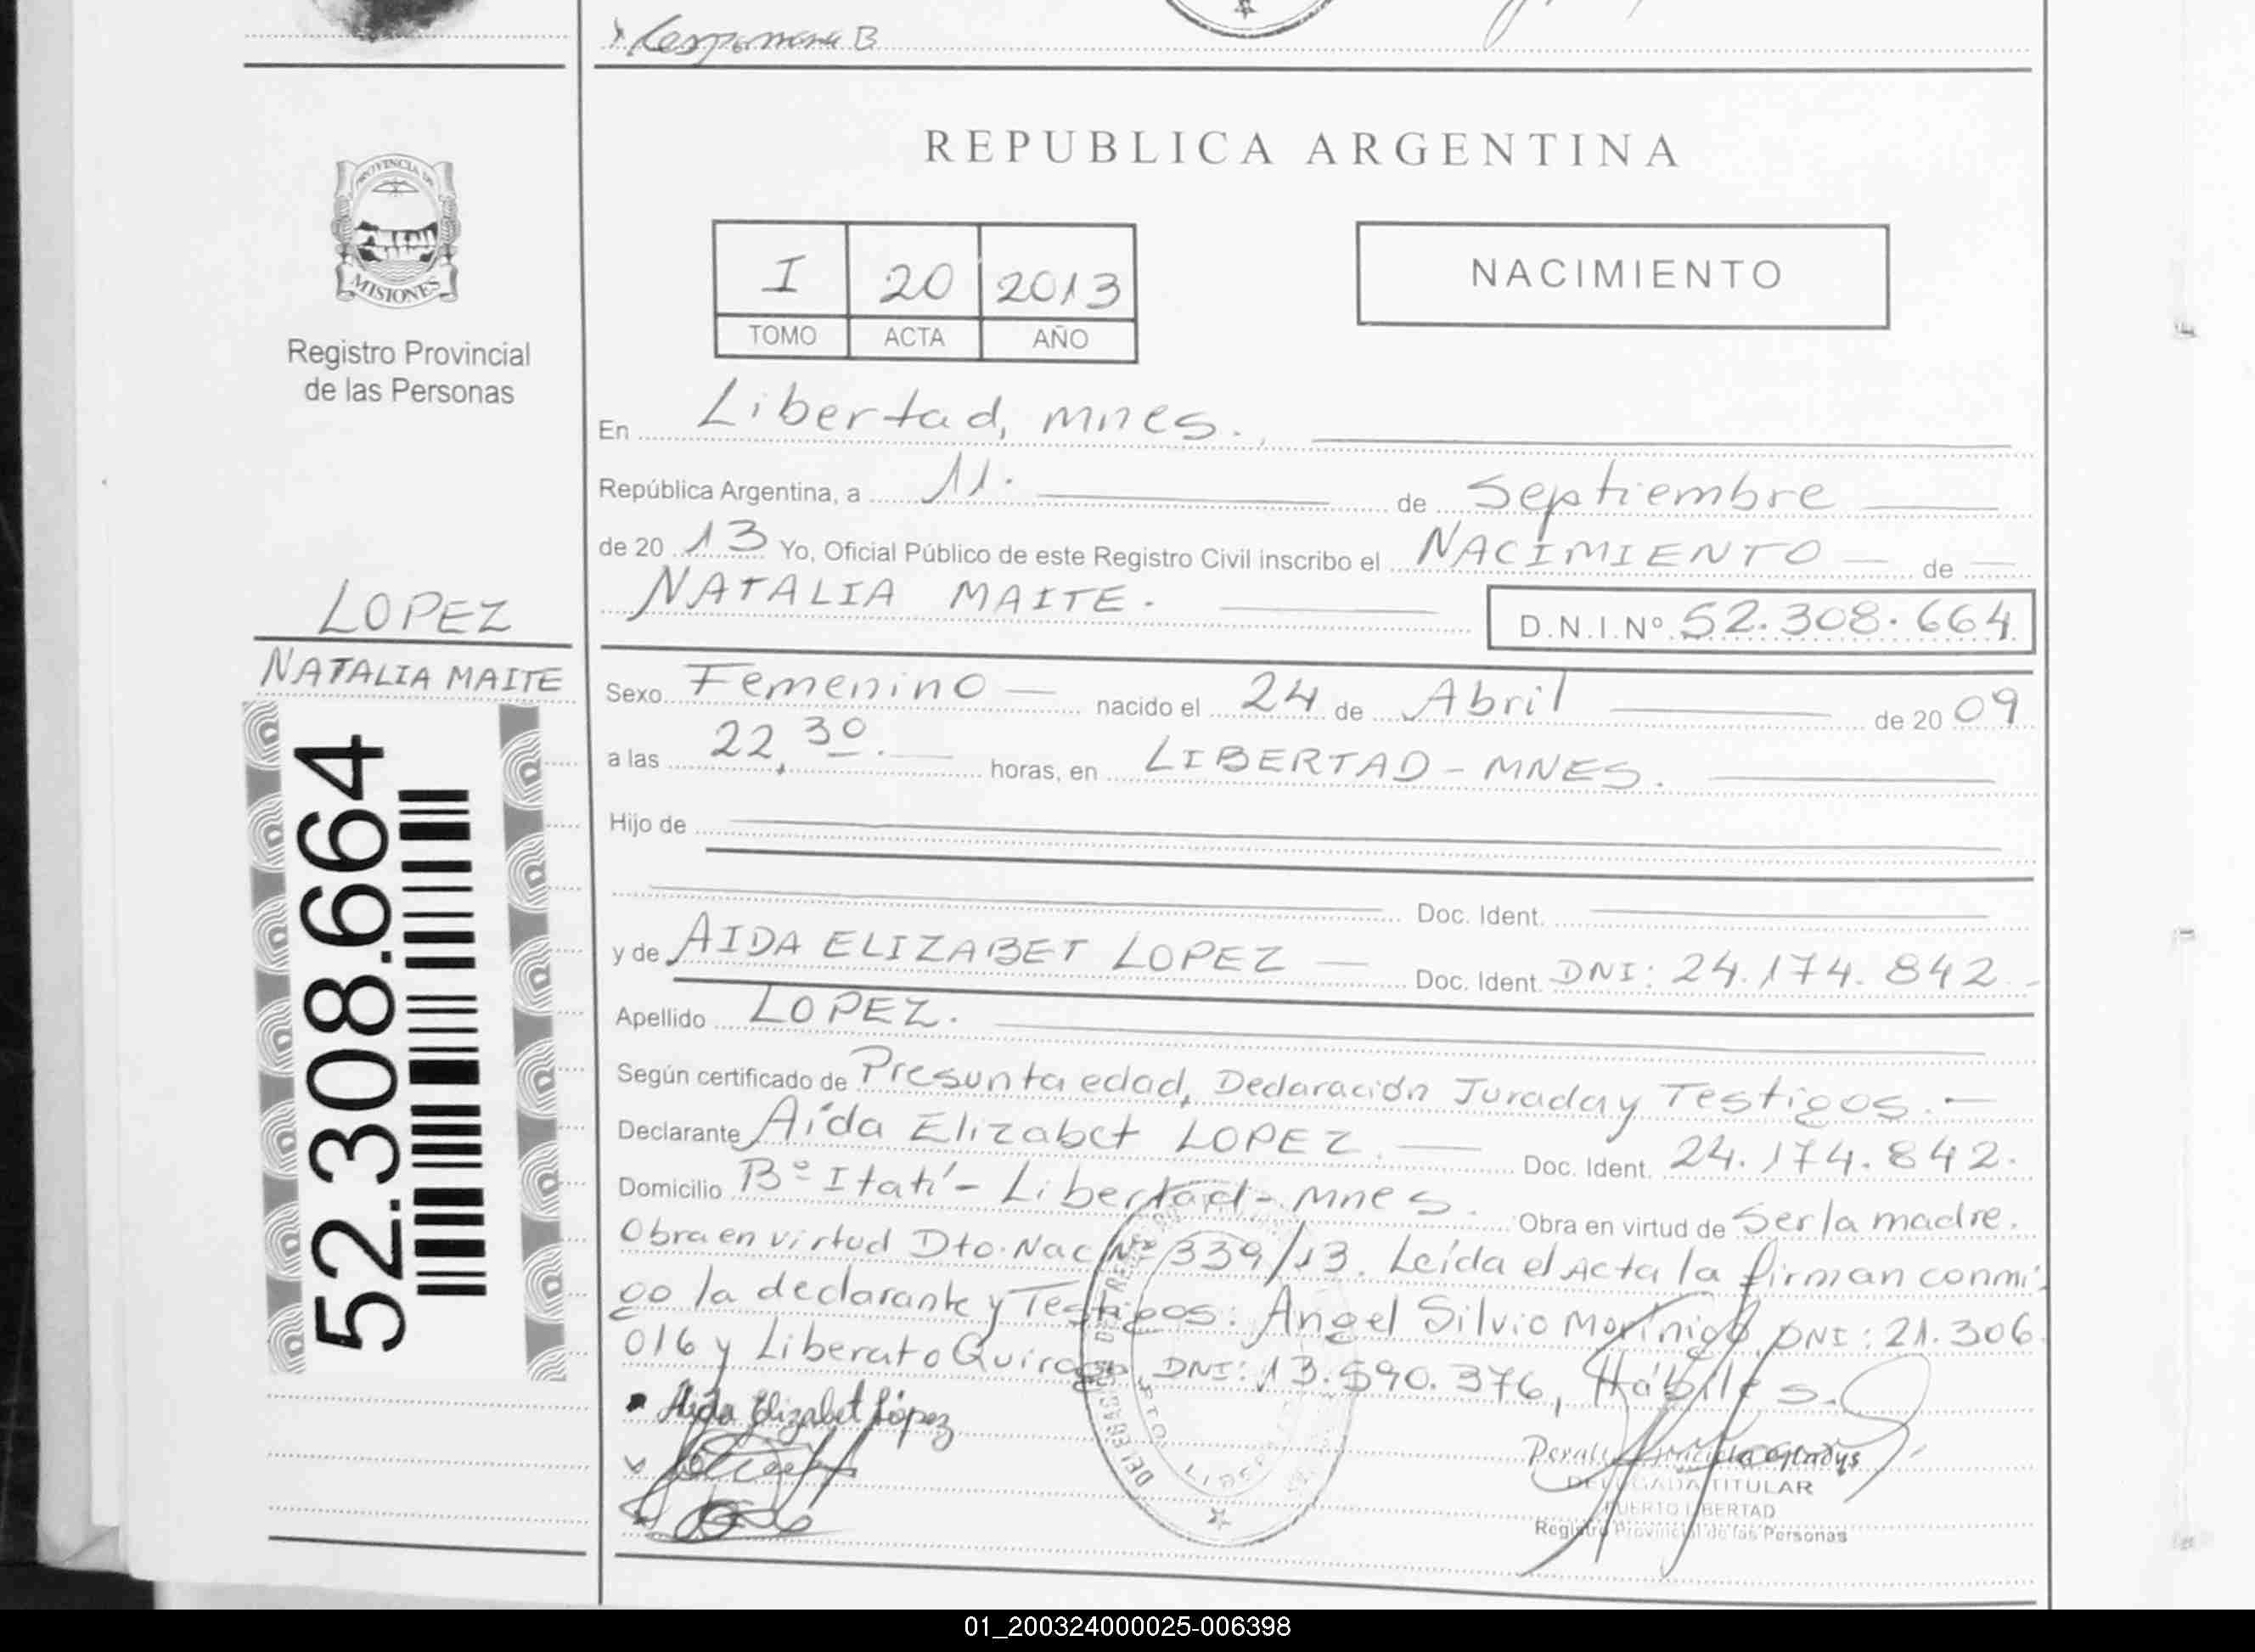 REPUBLICA ARGENTINA
PROVINCIA DE
MISIONES
Registro Provincial
de las Personas
I 20 2013
TOMO ACTA AÑO
NACIMIENTO
En Libertad, mnes.
República Argentina, a 11. de Septiembre
de 20 13 Yo, Oficial Público de este Registro Civil inscribo el NACIMIENTO de
NATALIA MAITE.
D.N.I.Nº 52.308.664
LOPEZ
NATALIA MAITE
52.308.664
Sexo Femenino nacido el 24 de Abril de 20 09
a las 22,30. horas, en LIBERTAD - MNES.
Hijo de
Doc. Ident.
y de AIDA ELIZABET LOPEZ Doc. Ident. DNI: 24.174.842.
Apellido LOPEZ.
Según certificado de Presunta edad, Declaración Jurada y Testigos.
Declarante Aída Elizabet LOPEZ. Doc. Ident. 24.174.842.
Domicilio Bº Itatí - Libertad - mnes. Obra en virtud de Ser la madre.
Obra en virtud Dto. Nac Nº 339/13. Leída el Acta la firman conmi
go la declarante y Testigos: Angel Silvio Morínigo, DNI: 21.306.
016 y Liberato Quiroga, DNI: 13.590.376, Hábiles.
Aida Elizabet López
Gladys
DELEGADA TITULAR
PUERTO LIBERTAD
Registro Provincial de las Personas
01_200324000025-006398